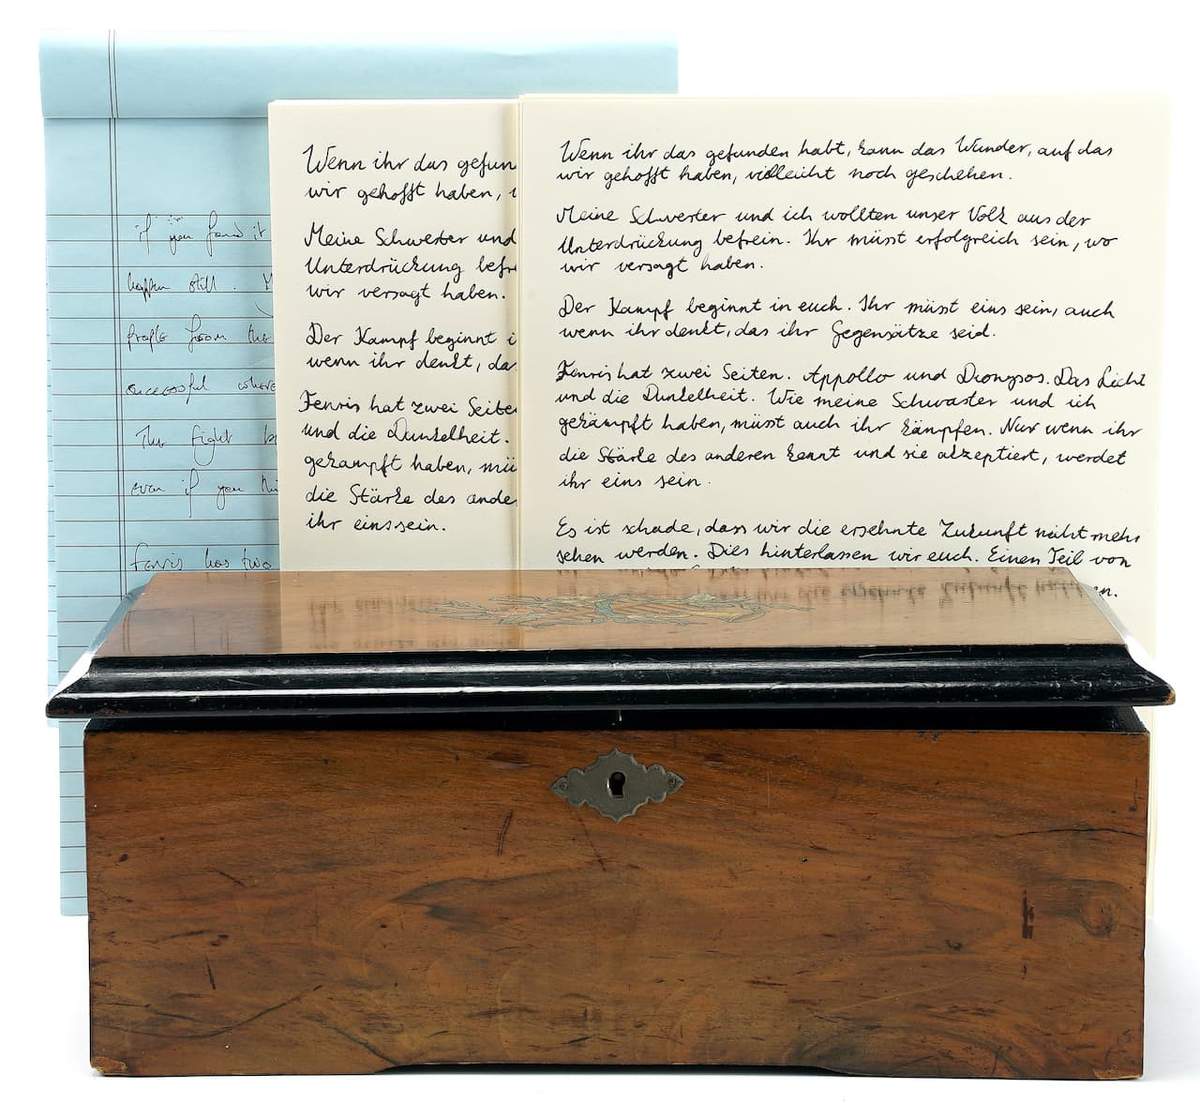 if you found it
happen still.
people from the
successful where
The fight
even if you
Fenris has two
Wenn ihr das gefun
wir gehofft haben,
Meine Schwester und
Unterdrückung befre
wir versagt haben.
Der Kampf beginnt i
wenn ihr denkt, das
Fenris hat zwei Seiten
und die Dunkelheit.
gekampft haben, mü
die Stärke des ande
ihr eins sein.
Wenn ihr das gefunden habt, kann das Wunder, auf das
wir gehofft haben, vielleicht noch geschehen.
Meine Schwerter und ich wollten unser Volk aus der
Unterdrückung befrein. Ihr müsst erfolgreich sein, wo
wir versagt haben.
Der Kampf beginnt in euch. Ihr müsst eins sein, auch
wenn ihr denkt, das ihr Gegensätze seid.
Fenris hat zwei Seiten. Appollo und Dionysos. Das Licht
und die Dunkelheit. Wie meine Schwaster und ich
gekämpft haben, müsst auch ihr kämpfen. Nur wenn ihr
die Stärke des anderen kennt und sie akzeptiert, werdet
ihr eins sein.
Es ist schade, dass wir die ersehnte Zukunft nicht mehr
sehen werden. Dies hinterlassen wir euch. Einen Teil von